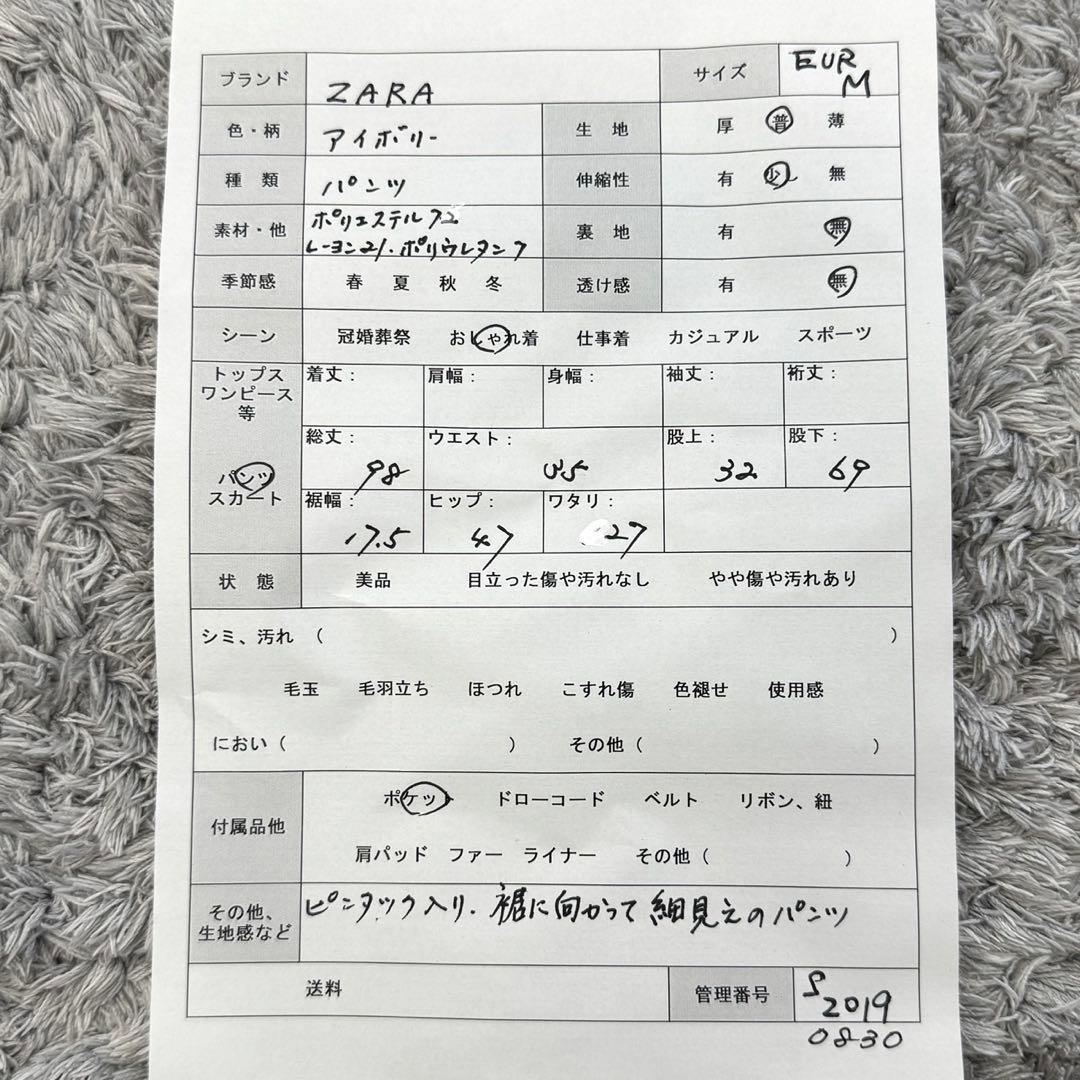 ブランド ZARA サイズ EUR M
色・柄 アイボリー 生 地 厚 普 薄
種 類 パンツ 伸縮性 有 少 無
素材・他 ポリエステル72 レーヨン21・ポリウレタン7 裏 地 有 無
季節感 春 夏 秋 冬 透け感 有 無
シーン 冠婚葬祭 おしゃれ着 仕事着 カジュアル スポーツ
トップス ワンピース 等 着丈: 肩幅: 身幅: 袖丈: 裄丈:
パンツ スカート 総丈: 98 ウエスト: 35 股上: 32 股下: 69
裾幅: 17.5 ヒップ: 47 ワタリ: 27
状 態 美品 目立った傷や汚れなし やや傷や汚れあり
シミ、汚れ ( )
毛玉 毛羽立ち ほつれ こすれ傷 色褪せ 使用感
におい ( ) その他 ( )
付属品他 ポケット ドローコード ベルト リボン、紐
肩パッド ファー ライナー その他 ( )
その他、生地感など ピンタック入り.裾に向かって細見えのパンツ
送料 管理番号 S2019
0830